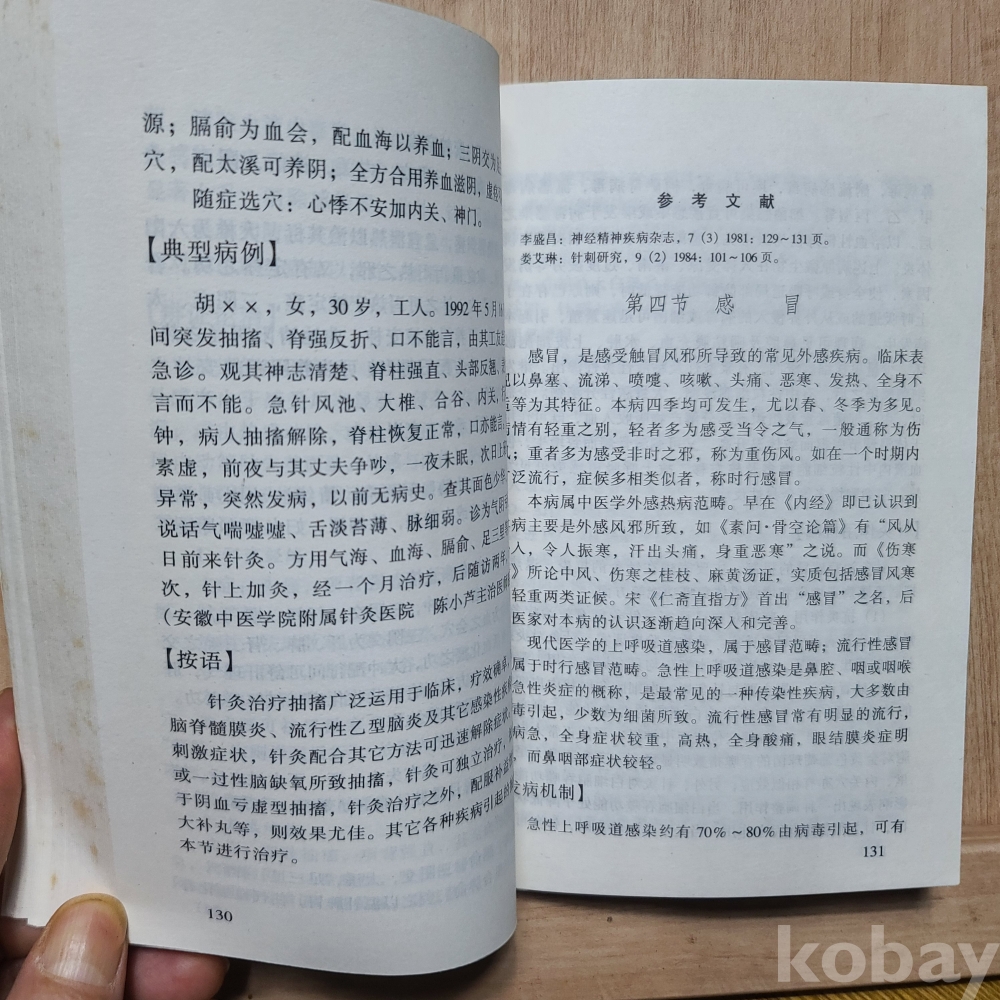 源；膈俞为血会，配血海以养血；三阴交为足
穴，配太溪可养阴；全方合用养血滋阴，虚
随症选穴：心悸不安加内关、神门。
【典型病例】
胡××，女，30岁，工人。1992年5月
间突发抽搐、脊强反折、口不能言，由其工友
急诊。观其神志清楚、脊柱强直、头部反翘、
言而不能。急针风池、大椎、合谷、内关，
钟，病人抽搐解除，脊柱恢复正常，口亦能言
素虚，前夜与其丈夫争吵，一夜未眠，次日上
异常，突然发病，以前无病史。查其面色少
说话气喘嘘嘘、舌淡苔薄、脉细弱。诊为气阴
日前来针灸。方用气海、血海、膈俞、足三里
次，针上加灸，经一个月治疗，后随访两年，
（安徽中医学院附属针灸医院 陈小芦主治医师
【按语】
针灸治疗抽搐广泛运用于临床，疗效确
脑脊髓膜炎、流行性乙型脑炎及其它感染性疾
刺激症状，针灸配合其它方法可迅速解除症状
或一过性脑缺氧所致抽搐，针灸可独立治疗，
于阴血亏虚型抽搐，针灸治疗之外，配服补益
大补丸等，则效果尤佳。其它各种疾病引起的
本节进行治疗。
130
参考文献
李盛昌：神经精神疾病杂志，7（3）1981：129～131页。
娄艾琳：针刺研究，9（2）1984：101～106页。
第四节 感 冒
感冒，是感受触冒风邪所导致的常见外感疾病。临床表
以鼻塞、流涕、喷嚏、咳嗽、头痛、恶寒、发热、全身不
等为其特征。本病四季均可发生，尤以春、冬季为多见。
情有轻重之别，轻者多为感受当令之气，一般通称为伤
；重者多为感受非时之邪，称为重伤风。如在一个时期内
泛流行，症候多相类似者，称时行感冒。
本病属中医学外感热病范畴。早在《内经》即已认识到
病主要是外感风邪所致，如《素问·骨空论篇》有“风从
人，令人振寒，汗出头痛，身重恶寒”之说。而《伤寒
》所论中风、伤寒之桂枝、麻黄汤证，实质包括感冒风寒
轻重两类证候。宋《仁斋直指方》首出“感冒”之名，后
医家对本病的认识逐渐趋向深人和完善。
现代医学的上呼吸道感染，属于感冒范畴；流行性感冒
属于时行感冒范畴。急性上呼吸道感染是鼻腔、咽或咽喉
急性炎症的概称，是最常见的一种传染性疾病，大多数由
毒引起，少数为细菌所致。流行性感冒常有明显的流行，
病急，全身症状较重，高热，全身酸痛，眼结膜炎症明
，而鼻咽部症状较轻。
发病机制】
急性上呼吸道感染约有70%～80%由病毒引起，可有
131
kobay